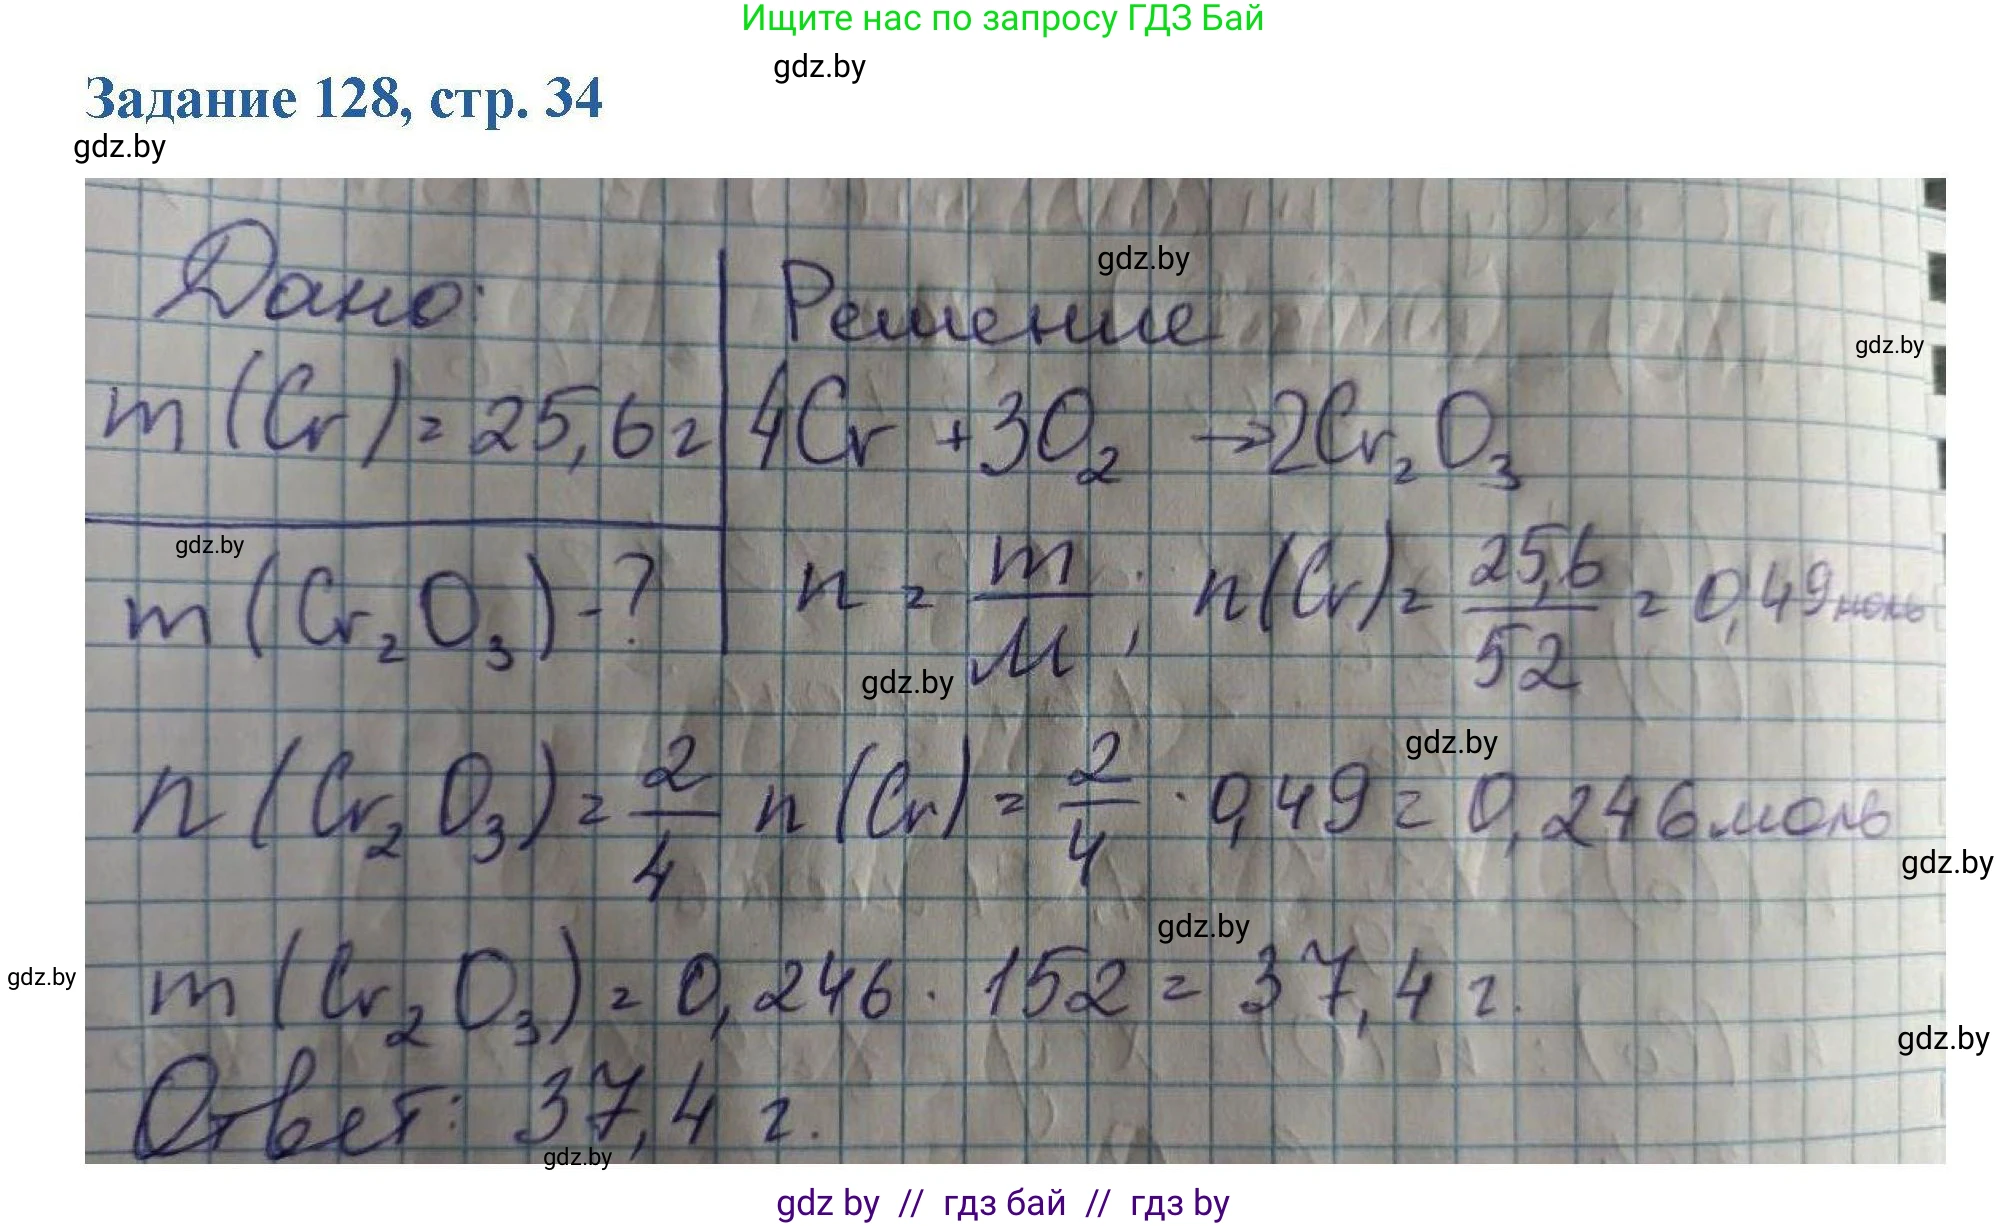 Ищите нас по запросу ГДЗ Бай
gdz.by
Задание 128, стр. 34
gdz.by
Дано:
Решение
gdz.by
gdz.by
m (Cr) = 25,6 г
4Cr + 3O₂ → 2Cr₂O₃
gdz.by
m (Cr₂O₃) - ?
n = m/M ; n(Cr) = 25,6/52 = 0,49 моль
gdz.by
gdz.by
n (Cr₂O₃) = 2/4 n (Cr) = 2/4 · 0,49 = 0,246 моль
gdz.by
gdz.by
gdz.by
m (Cr₂O₃) = 0,246 · 152 = 37,4 г.
gdz.by
Ответ: 37,4 г.
gdz.by
gdz by // гдз бай // гдз by